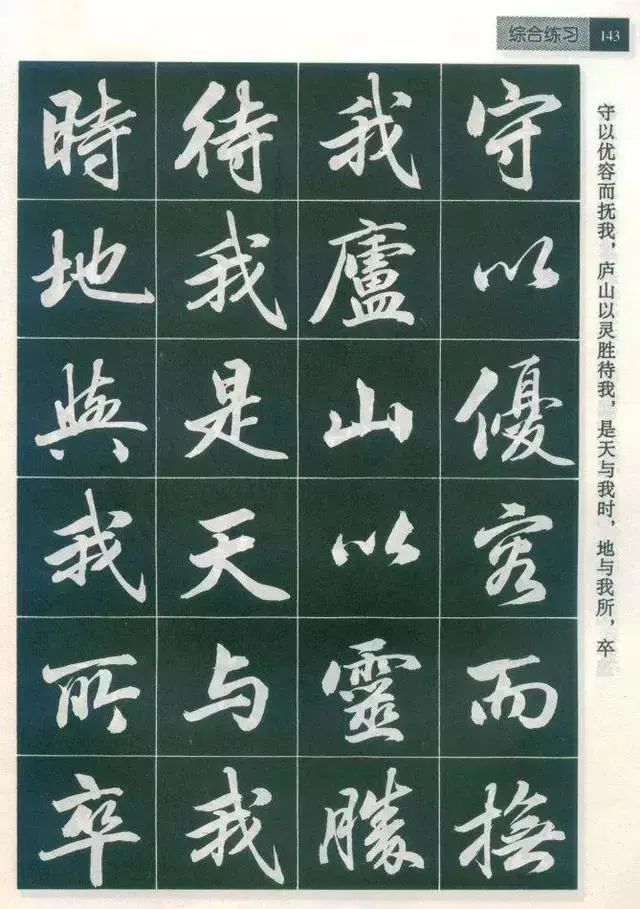 综合练习 143
守以優容而撫
我廬山以靈勝
待我是天与我
時地與我所卒
守以优容而抚我，庐山以灵胜待我，是天与我时，地与我所，卒